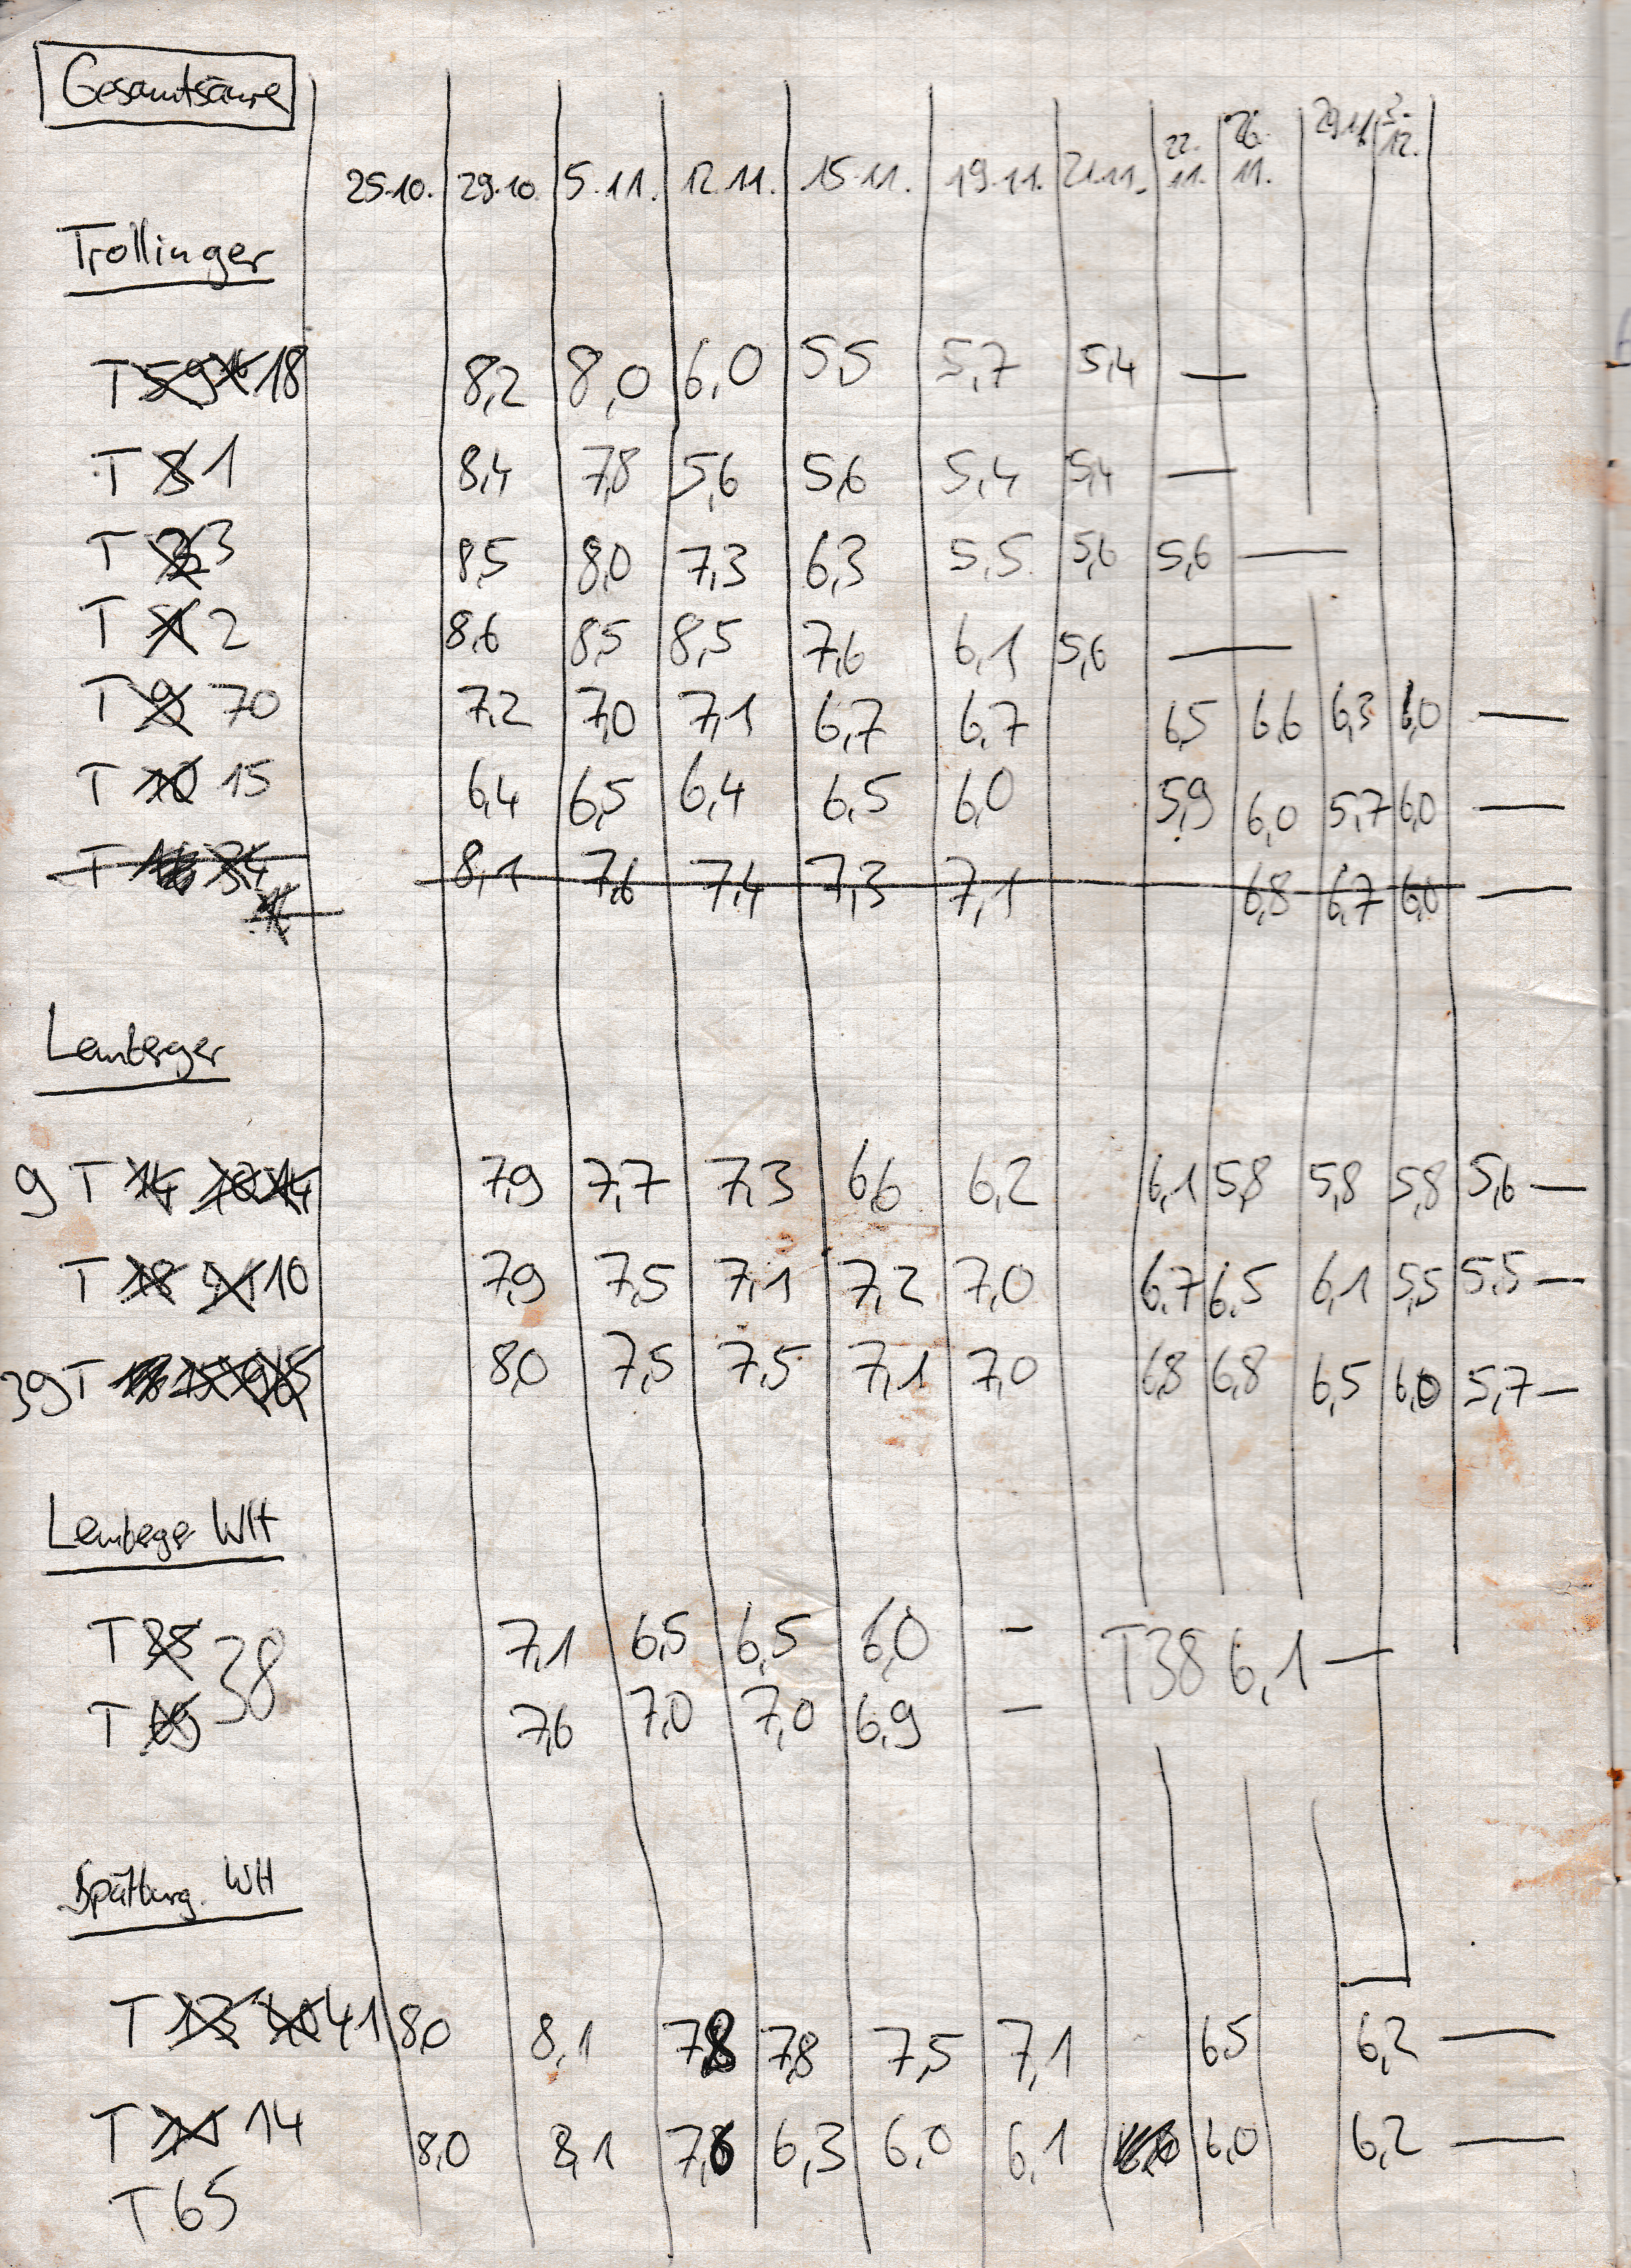 Gesamtsäure
25.10. 29.10. 5.11. 12.11. 15.11. 19.11. 21.11. 22.11. 26.11. 29.11. 3.12.
Trollinger
T 18 8,2 8,0 6,0 5,5 5,7 5,4 —
T 1 8,4 7,8 5,6 5,6 5,4 5,4 —
T 3 8,5 8,0 7,3 6,3 5,5 5,6 5,6 —
T 2 8,6 8,5 8,5 7,6 6,1 5,6 —
T 70 7,2 7,0 7,1 6,7 6,7 6,5 6,6 6,3 6,0 —
T 15 6,4 6,5 6,4 6,5 6,0 5,9 6,0 5,7 6,0 —
T 8,1 7,6 7,4 7,3 7,1 6,8 6,7 6,0 —
Lemberger
9 T 7,9 7,7 7,3 6,6 6,2 6,1 5,8 5,8 5,8 5,6 —
T 10 7,9 7,5 7,1 7,2 7,0 6,7 6,5 6,1 5,5 5,5 —
39 T 8,0 7,5 7,5 7,1 7,0 6,8 6,8 6,5 6,0 5,7 —
Lemberger WH
T 38 7,1 6,5 6,5 6,0 - T38 6,1 —
T 7,6 7,0 7,0 6,9 -
Spätburg. WH
T 41 8,0 8,1 7,8 7,8 7,5 7,1 6,5 6,2 —
T 14 8,0 8,1 7,6 6,3 6,0 6,1 6,0 6,2 —
T 65